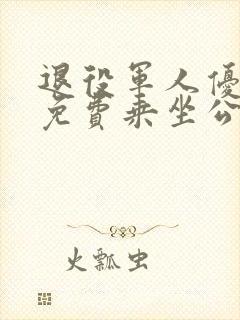 退役軍人優
免費乘坐公
火瓢虫